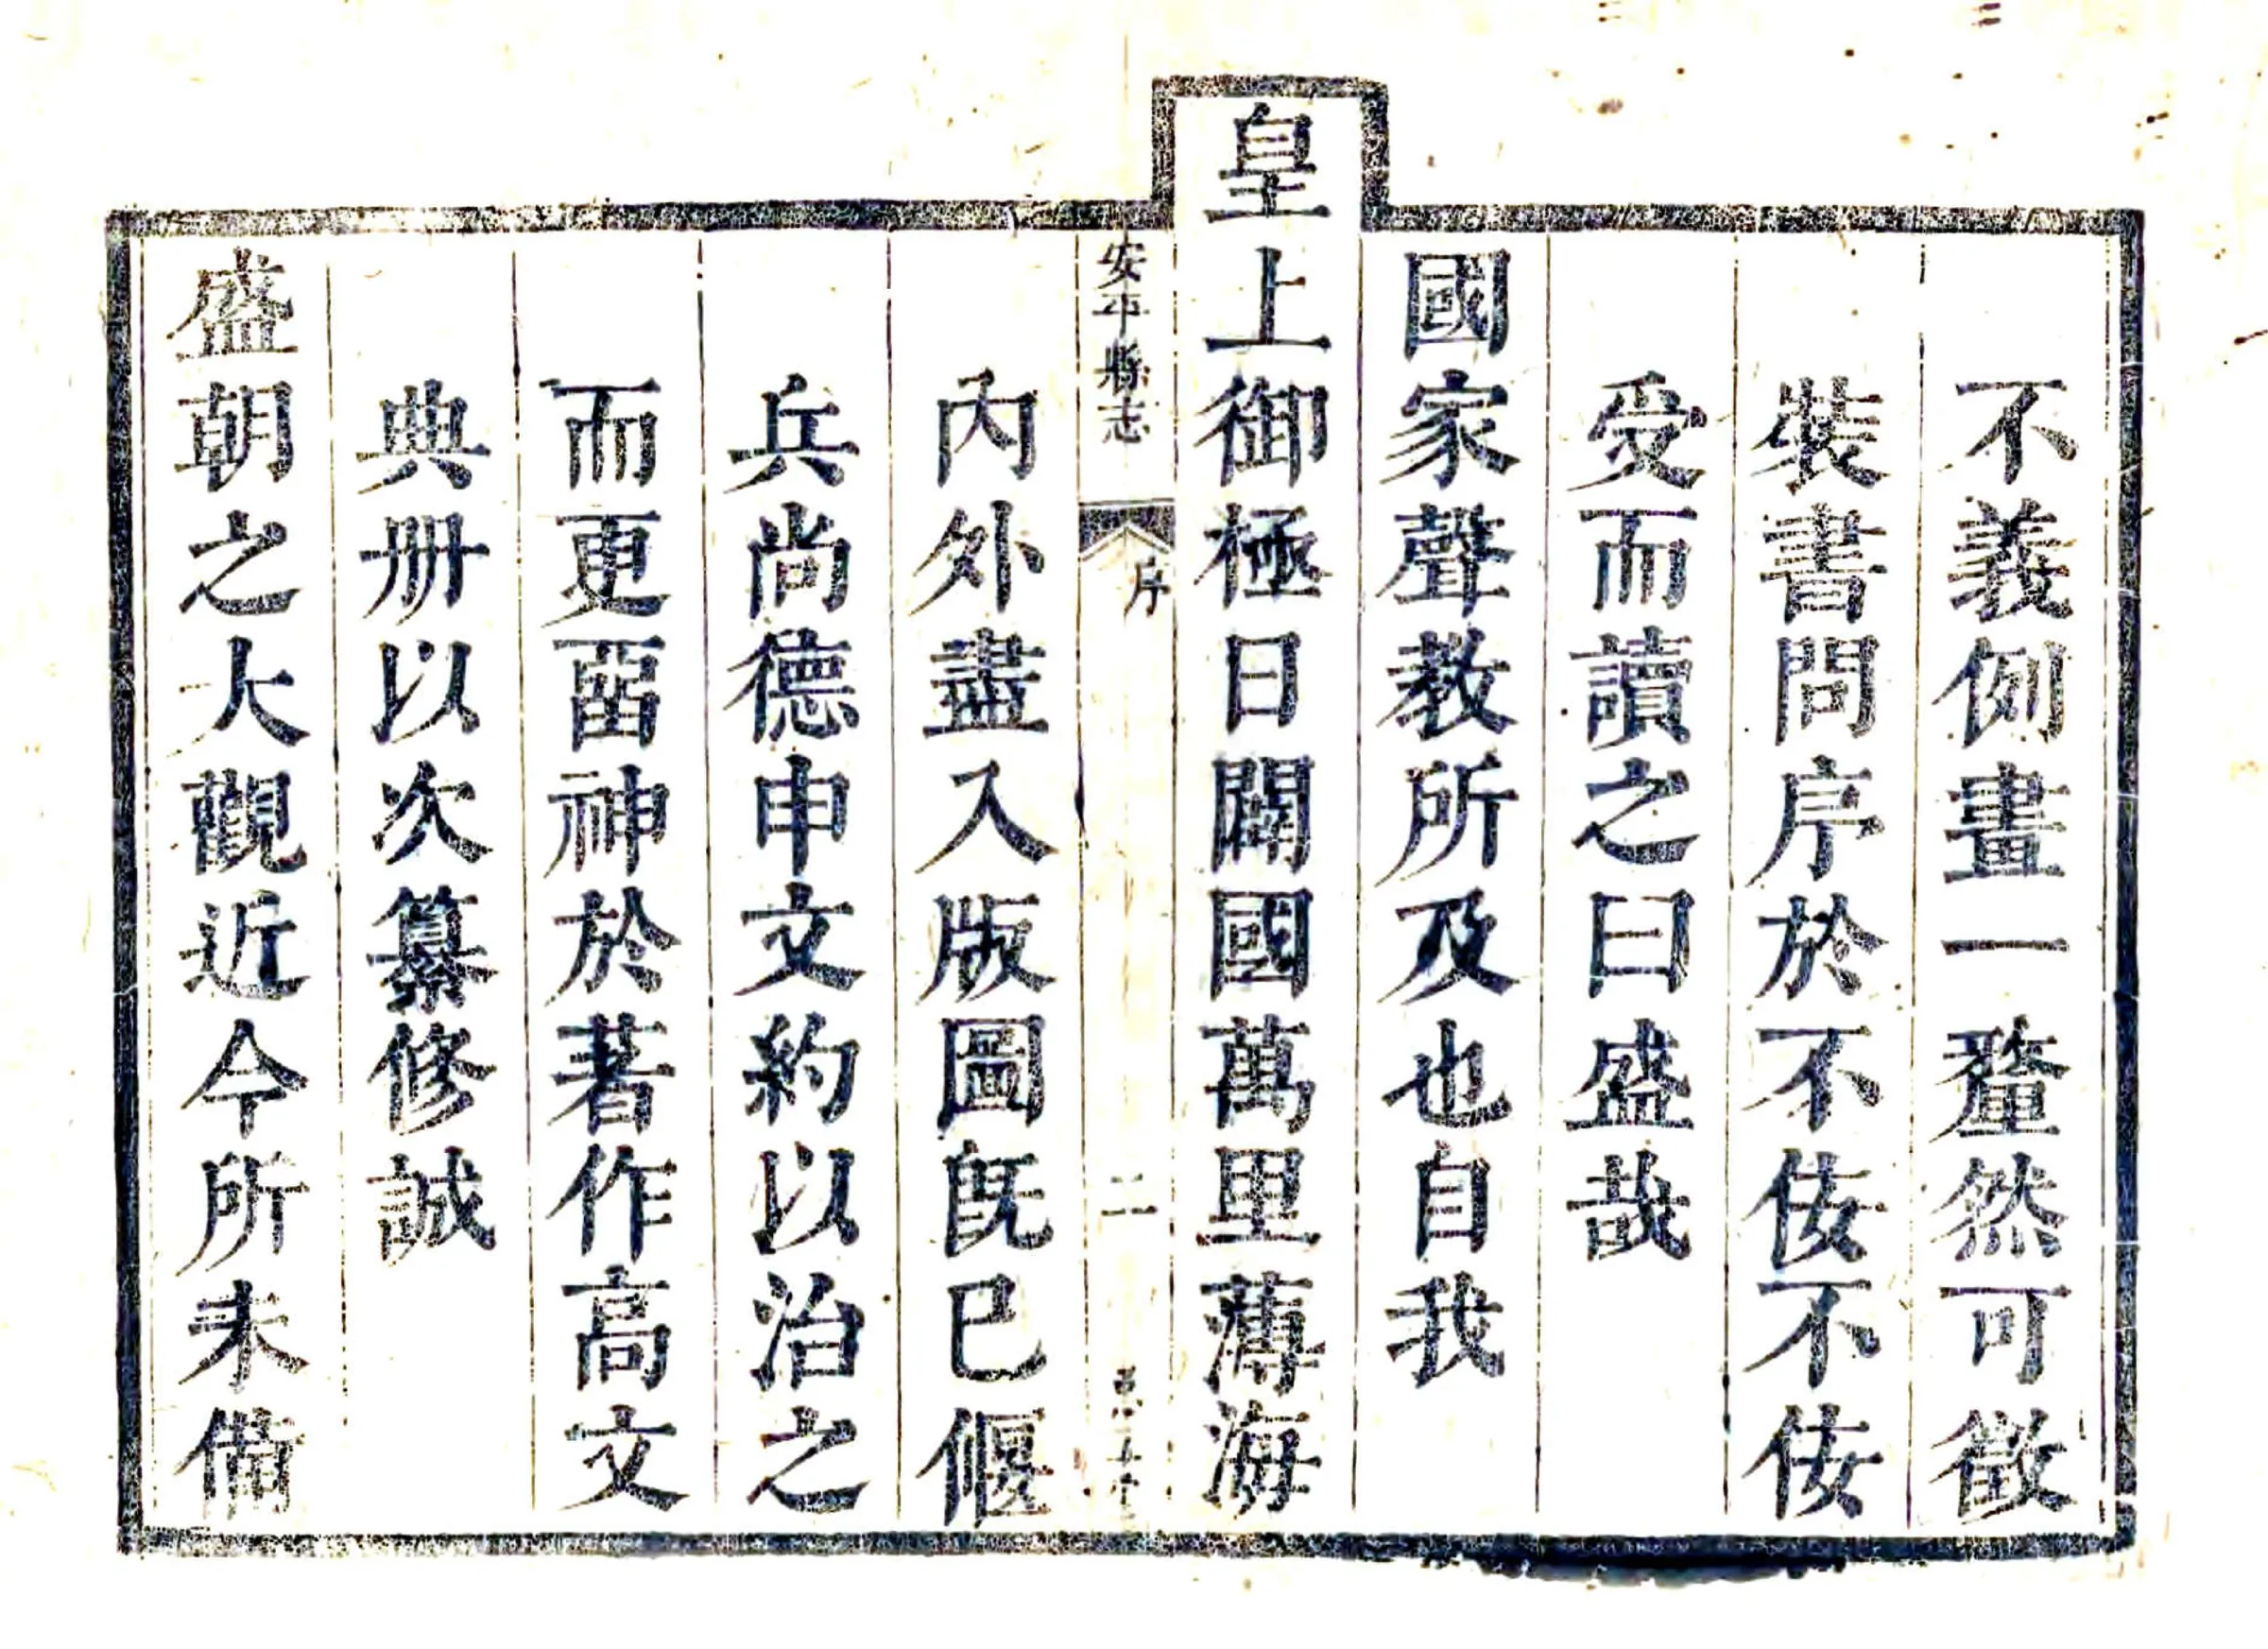 不義例畫一釐然可徵
裝書問序於不佞不佞
受而讀之曰盛哉
國家聲教所及也自我
皇上御極日闢國萬里薄海
安平縣志 序 二
內外盡入版圖旣已偃
兵尚德申文約以治之
而更畱神於著作高文
典册以次纂修誠
盛朝之大觀近今所未備